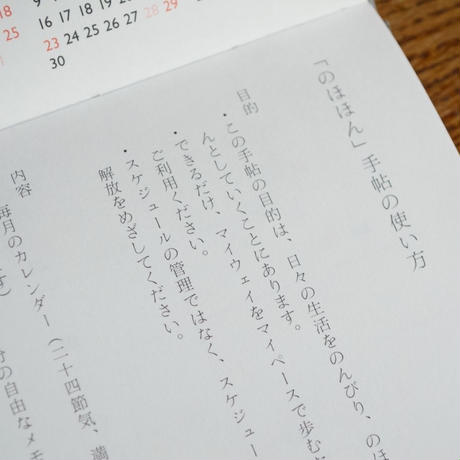 18 9
25 16 17 18 19 20 21 22
23 24 25 26 27 28 29
30
「のほほん」手帖の使い方
目的
・この手帖の目的は、日々の生活をのんびり、のほ
んとしていくことにあります。
・できるだけ、マイウェイをマイペースで歩むた
ご利用ください。
・スケジュールの管理ではなく、スケジュー
解放をめざしてください。
内容
毎月のカレンダー（二十四節気、満
分の自由なメモ